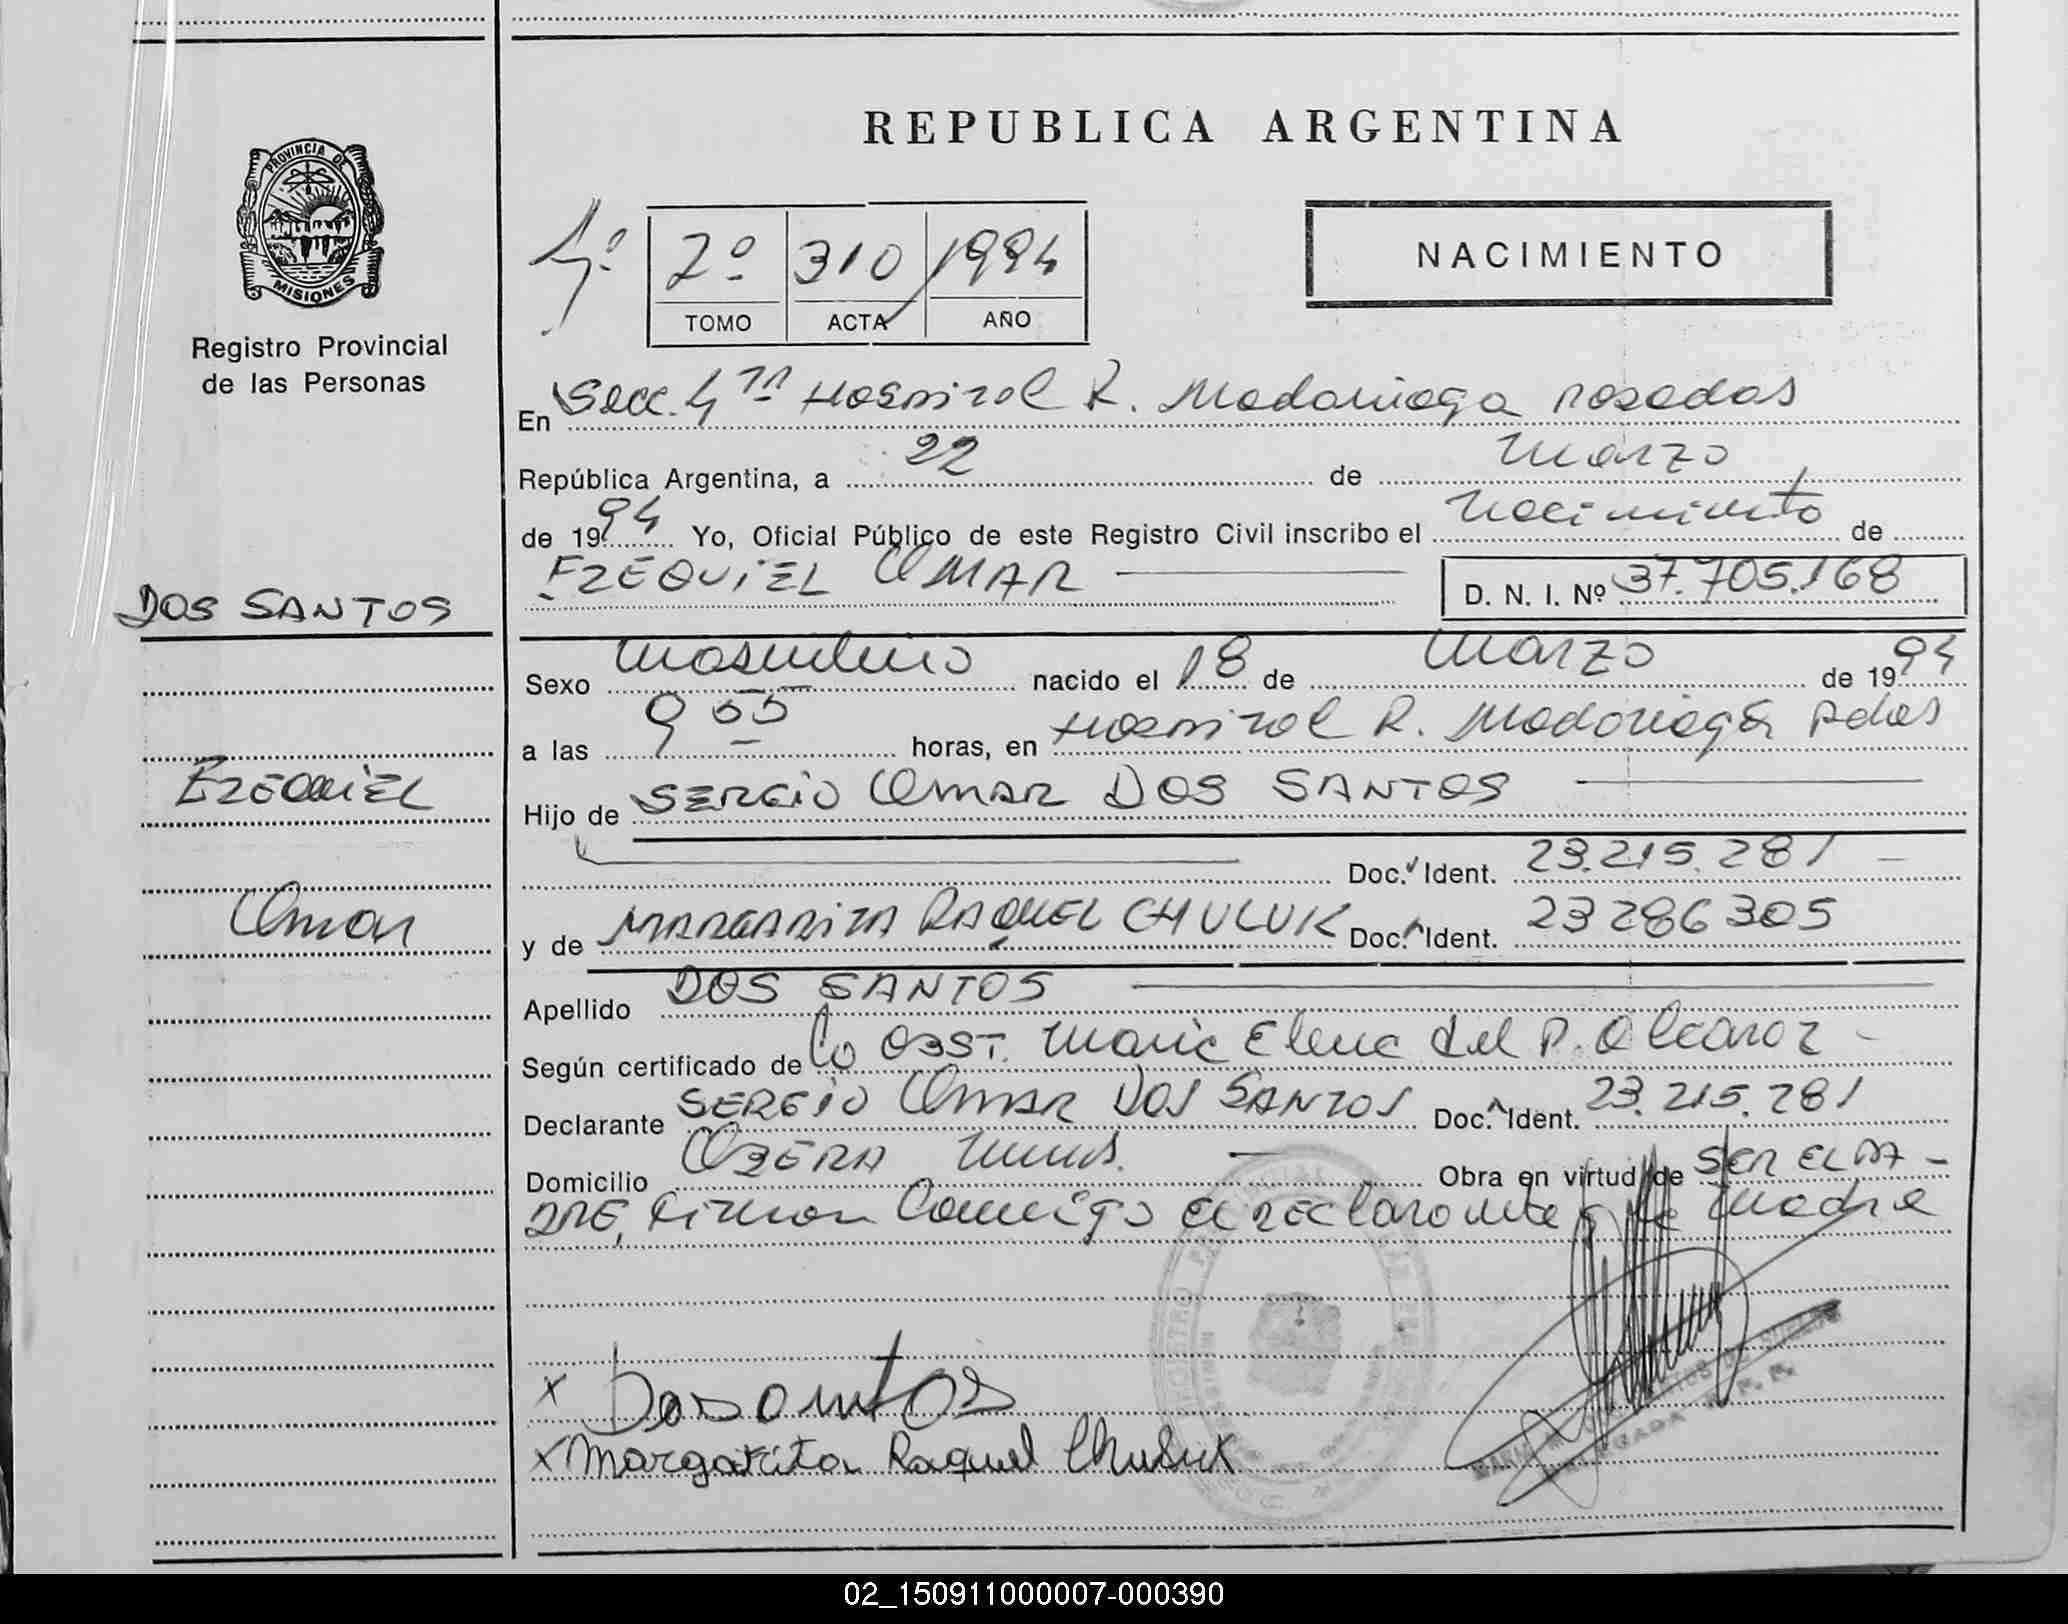 PROVINCIA DE
MISIONES
Registro Provincial
de las Personas
DOS SANTOS
EZEQUIEL
Omar
REPUBLICA ARGENTINA
4º 2º 310 1994
TOMO ACTA AÑO
NACIMIENTO
En Secc. 4ta Hospital R. Madariaga Posadas
República Argentina, a 22 de Marzo
de 1994 Yo, Oficial Público de este Registro Civil inscribo el Nacimiento de
EZEQUIEL OMAR D. N. I. Nº 37.705.168
Sexo Masculino nacido el 18 de Marzo de 1994
a las 9 55 horas, en Hospital R. Madariaga Pdas
Hijo de SERGIO OMAR DOS SANTOS
Doc. Ident. 23.215.281
y de MARGARITA RAQUEL CHULUK Doc. Ident. 23286305
Apellido DOS SANTOS
Según certificado de la OBST. Maria Elena del P. Alcaraz
Declarante SERGIO OMAR DOS SANTOS Doc. Ident. 23.215.281
Domicilio OBERA Mnes. Obra en virtud de SER EL PA-
DRE, Firman Conmigo el DEClarante y la Madre
x Dos Santos
x Margarita Raquel Chuluk
02_150911000007-000390